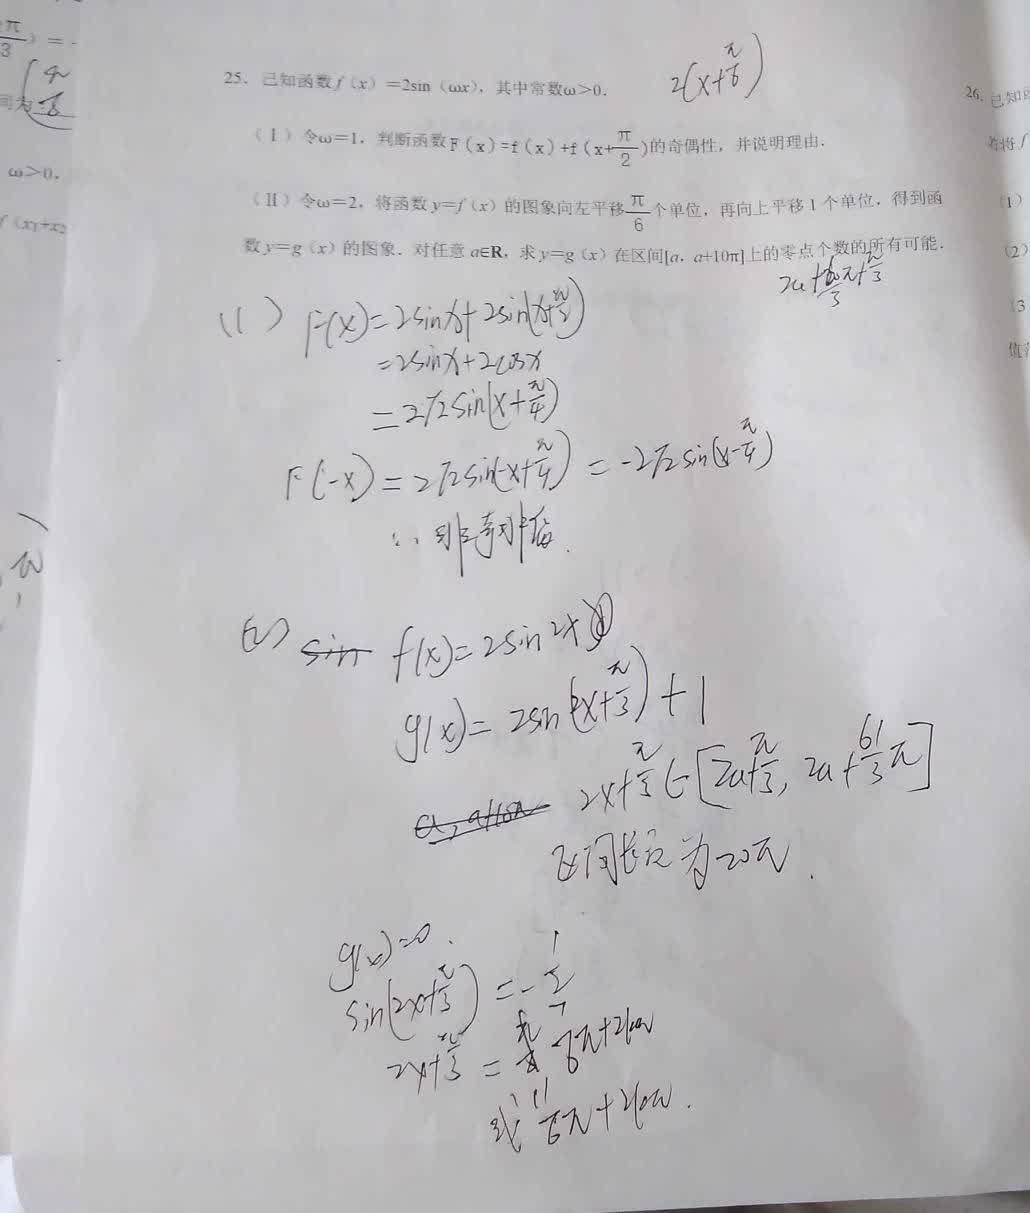 π/3) =
ω>0,
f(x₁+x₂
25. 已知函数 f(x)=2sin(ωx), 其中常数ω>0.
2(x+π/6)
(Ⅰ)令ω=1, 判断函数F(x)=f(x)+f(x+π/2)的奇偶性, 并说明理由.
(Ⅱ)令ω=2, 将函数 y=f(x)的图象向左平移π/6个单位, 再向上平移1个单位, 得到函
数 y=g(x)的图象. 对任意 a∈R, 求 y=g(x)在区间[a, a+10π]上的零点个数的所有可能.
2a+60/3π+π/3
(1) F(x)=2sinx+2sin(x+π/2)
=2sinx+2cosx
=2√2sin(x+π/4)
F(-x)=2√2sin(-x+π/4)=-2√2sin(x-π/4)
∴非奇非偶.
(2) sin f(x)=2sin2x
g(x)=2sin(2x+π/3)+1
a, a+10π 2x+π/3∈[2a+π/3, 2a+61/3π]
区间长度为20π.
g(x)=0.
sin(2x+π/3)=-1/2
2x+π/3=7/6π+2kπ
或11/6π+2kπ.
26. 已知
若将 f
(1)
(2)
(3
值